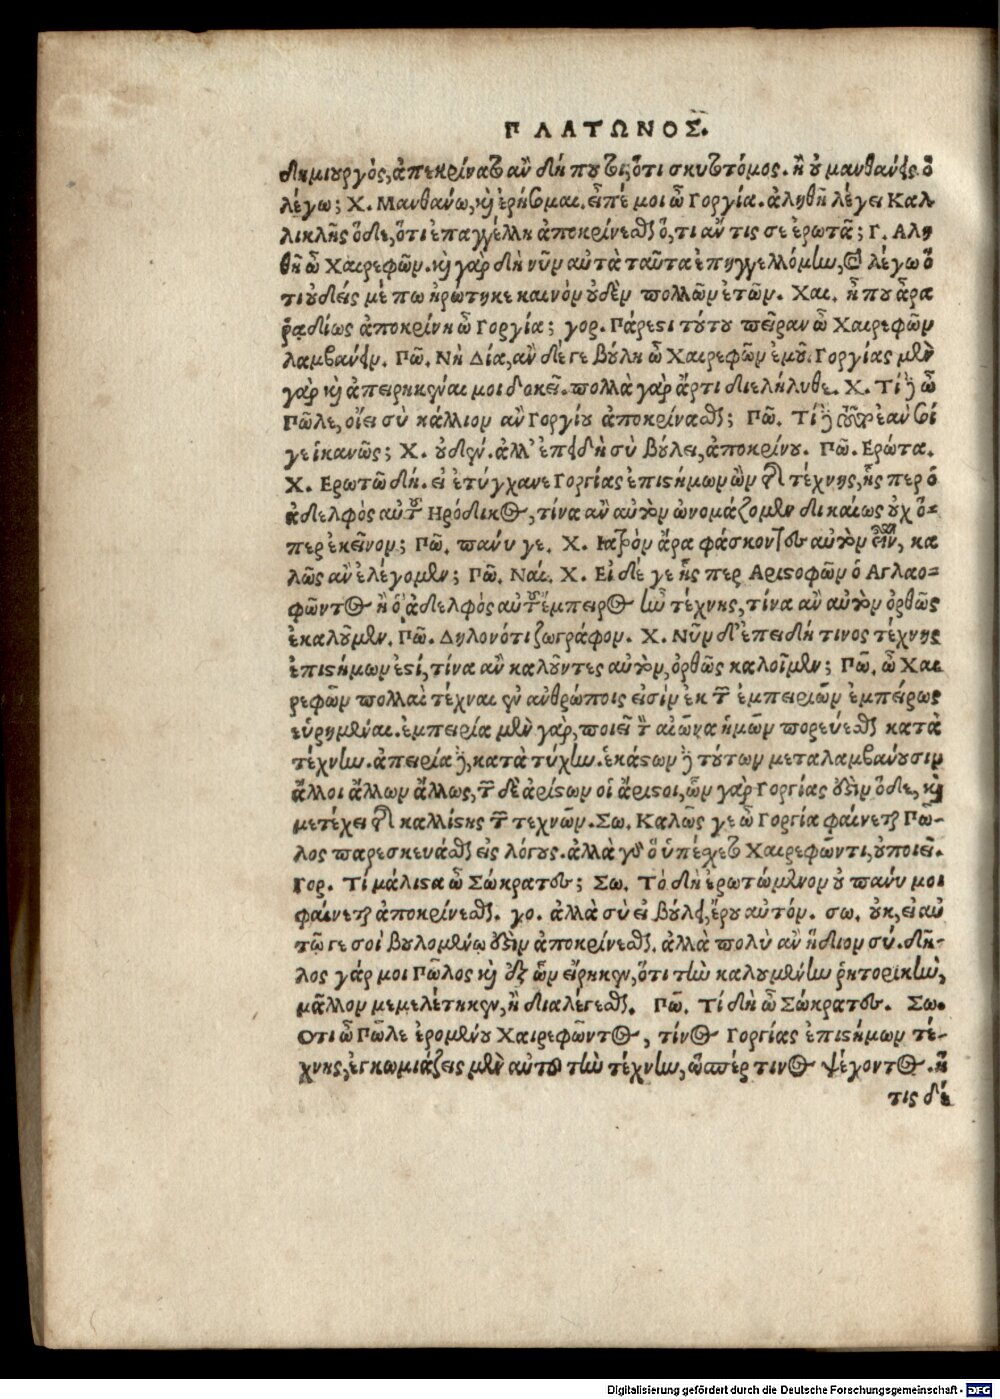 ΠΛΑΤΩΝΟΣ.
δημιουργὸς, ἀπεκρίνατο ἂν δή που σοι, ὅτι σκυτοτόμος. ἢ οὐ μανθάνεις ὃ
λέγω; Χ. Μανθάνω, καὶ ἐρήσομαι. εἶπέ μοι ὦ Γοργία. ἀληθῆ λέγει Καλ
λικλῆς ὅδε, ὅτι ἐπαγγέλλῃ ἀποκρίνεσθαι ὅ, τι ἄν τις σε ἐρωτᾶ; Γ. Αλη
θῆ ὦ Χαιρεφῶν. καὶ γὰρ δὴ νῦν αὐτὰ ταῦτα ἐπηγγελλόμην, καὶ λέγω ὅ
τι οὐδείς μέ πω ἠρώτηκε καινὸν οὐδὲν πολλῶν ἐτῶν. Χαι. ἦ που ἄρα
ῥαδίως ἀποκρίνῃ ὦ Γοργία; γορ. Πάρεστι τούτου πεῖραν ὦ Χαιρεφῶν
λαμβάνειν. Πῶ. Νὴ Δία, ἂν δέ γε βούλῃ ὦ Χαιρεφῶν ἐμοῦ. Γοργίας μὲν
γὰρ καὶ ἀπειρηκέναι μοι δοκεῖ. πολλὰ γὰρ ἄρτι διελήλυθε. Χ. Τί δὲ ὦ
Πῶλε, οἴει σὺ κάλλιον ἂν Γοργίου ἀποκρίνασθαι; Πῶ. Τί δὲ τοῦτο ἐὰν σοί
γε ἱκανῶς; Χ. οὐδέν. ἀλλ' ἐπειδὴ σὺ βούλει, ἀποκρίνου. Πῶ. Ερώτα.
Χ. Ερωτῶ δή. εἰ ἐτύγχανε Γοργίας ἐπιστήμων ὢν τῆς τέχνης, ἧς περ ὁ
ἀδελφὸς αὐτοῦ Ηρόδικος, τίνα ἂν αὐτὸν ὠνομάζομεν δικαίως οὐχ ὅ-
περ ἐκεῖνον; Πῶ. πάνυ γε. Χ. Ιατρὸν ἄρα φάσκοντες αὐτὸν εἶναι, κα
λῶς ἂν ἐλέγομεν; Πῶ. Ναί. Χ. Εἰ δέ γε ἧς περ Αριστοφῶν ὁ Αγλαο-
φῶντος ἢ ὁ ἀδελφὸς αὐτοῦ ἔμπειρος ἦν τέχνης, τίνα ἂν αὐτὸν ὀρθῶς
ἐκαλοῦμεν. Πῶ. Δηλονότι ζωγράφον. Χ. Νῦν δ' ἐπειδή τινος τέχνης
ἐπιστήμων ἐστί, τίνα ἂν καλοῦντες αὐτὸν, ὀρθῶς καλοῖμεν; Πῶ. ὦ Χαι
ρεφῶν πολλαὶ τέχναι ἐν ἀνθρώποις εἰσὶν ἐκ τῶν ἐμπειριῶν ἐμπείρως
εὑρημέναι. ἐμπειρία μὲν γὰρ, ποιεῖ τὸν αἰῶνα ἡμῶν πορεύεσθαι κατὰ
τέχνην. ἀπειρία δὲ, κατὰ τύχην. ἑκάστων δὲ τούτων μεταλαμβάνουσιν
ἄλλοι ἄλλων ἄλλως, τῶν δὲ ἀρίστων οἱ ἄριστοι, ὧν γὰρ Γοργίας ἐστὶν ὅδε, καὶ
μετέχει τῆς καλλίστης τῶν τεχνῶν. Σω. Καλῶς γε ὦ Γοργία φαίνεται Πῶ-
λος παρεσκευάσθαι εἰς λόγους. ἀλλὰ γὰρ ὃ ὑπέσχετο Χαιρεφῶντι, οὐ ποιεῖ.
Γορ. Τί μάλιστα ὦ Σώκρατες; Σω. Τὸ δὴ ἐρωτώμενον οὐ πάνυ μοι
φαίνεται ἀποκρίνεσθαι. γο. ἀλλὰ σὺ εἰ βούλει, ἔρου αὐτόν. σω. οὐκ, εἰ αὐ
τῷ γε σοὶ βουλομένῳ ἐστὶν ἀποκρίνεσθαι. ἀλλὰ πολὺ ἂν ἥδιον σύ. δῆ-
λος γάρ μοι Πῶλος καὶ ἐξ ὧν εἴρηκεν, ὅτι τὴν καλουμένην ῥητορικὴν,
μᾶλλον μεμελέτηκεν, ἢ διαλέγεσθαι. Πῶ. Τί δὴ ὦ Σώκρατες. Σω.
Οτι ὦ Πῶλε ἐρομένου Χαιρεφῶντος, τίνος Γοργίας ἐπιστήμων τέ-
χνης, ἐγκωμιάζεις μὲν αὐτοῦ τὴν τέχνην, ὥσπέρ τινος ψέγοντος. ἥ
τις δέ
Digitalisierung gefördert durch die Deutsche Forschungsgemeinschaft - DFG